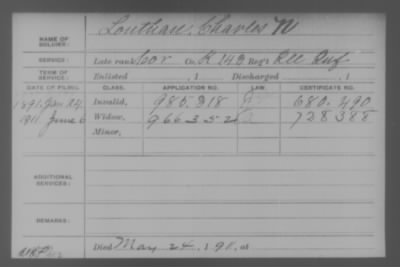 NAME OF SOLDIER: Louthan, Charles N
SERVICE: Late rank Cor Co. K 149 Reg't Ill Inf
TERM OF SERVICE: Enlisted , 1 Discharged , 1
DATE OF FILING. CLASS. APPLICATION NO. LAW. CERTIFICATE NO.
1891, Jan 24 Invalid, 985.318 680.490
1911, June 6 Widow, 966352 728388
Minor,
ADDITIONAL SERVICES:
REMARKS:
Died May 24, 1911, at